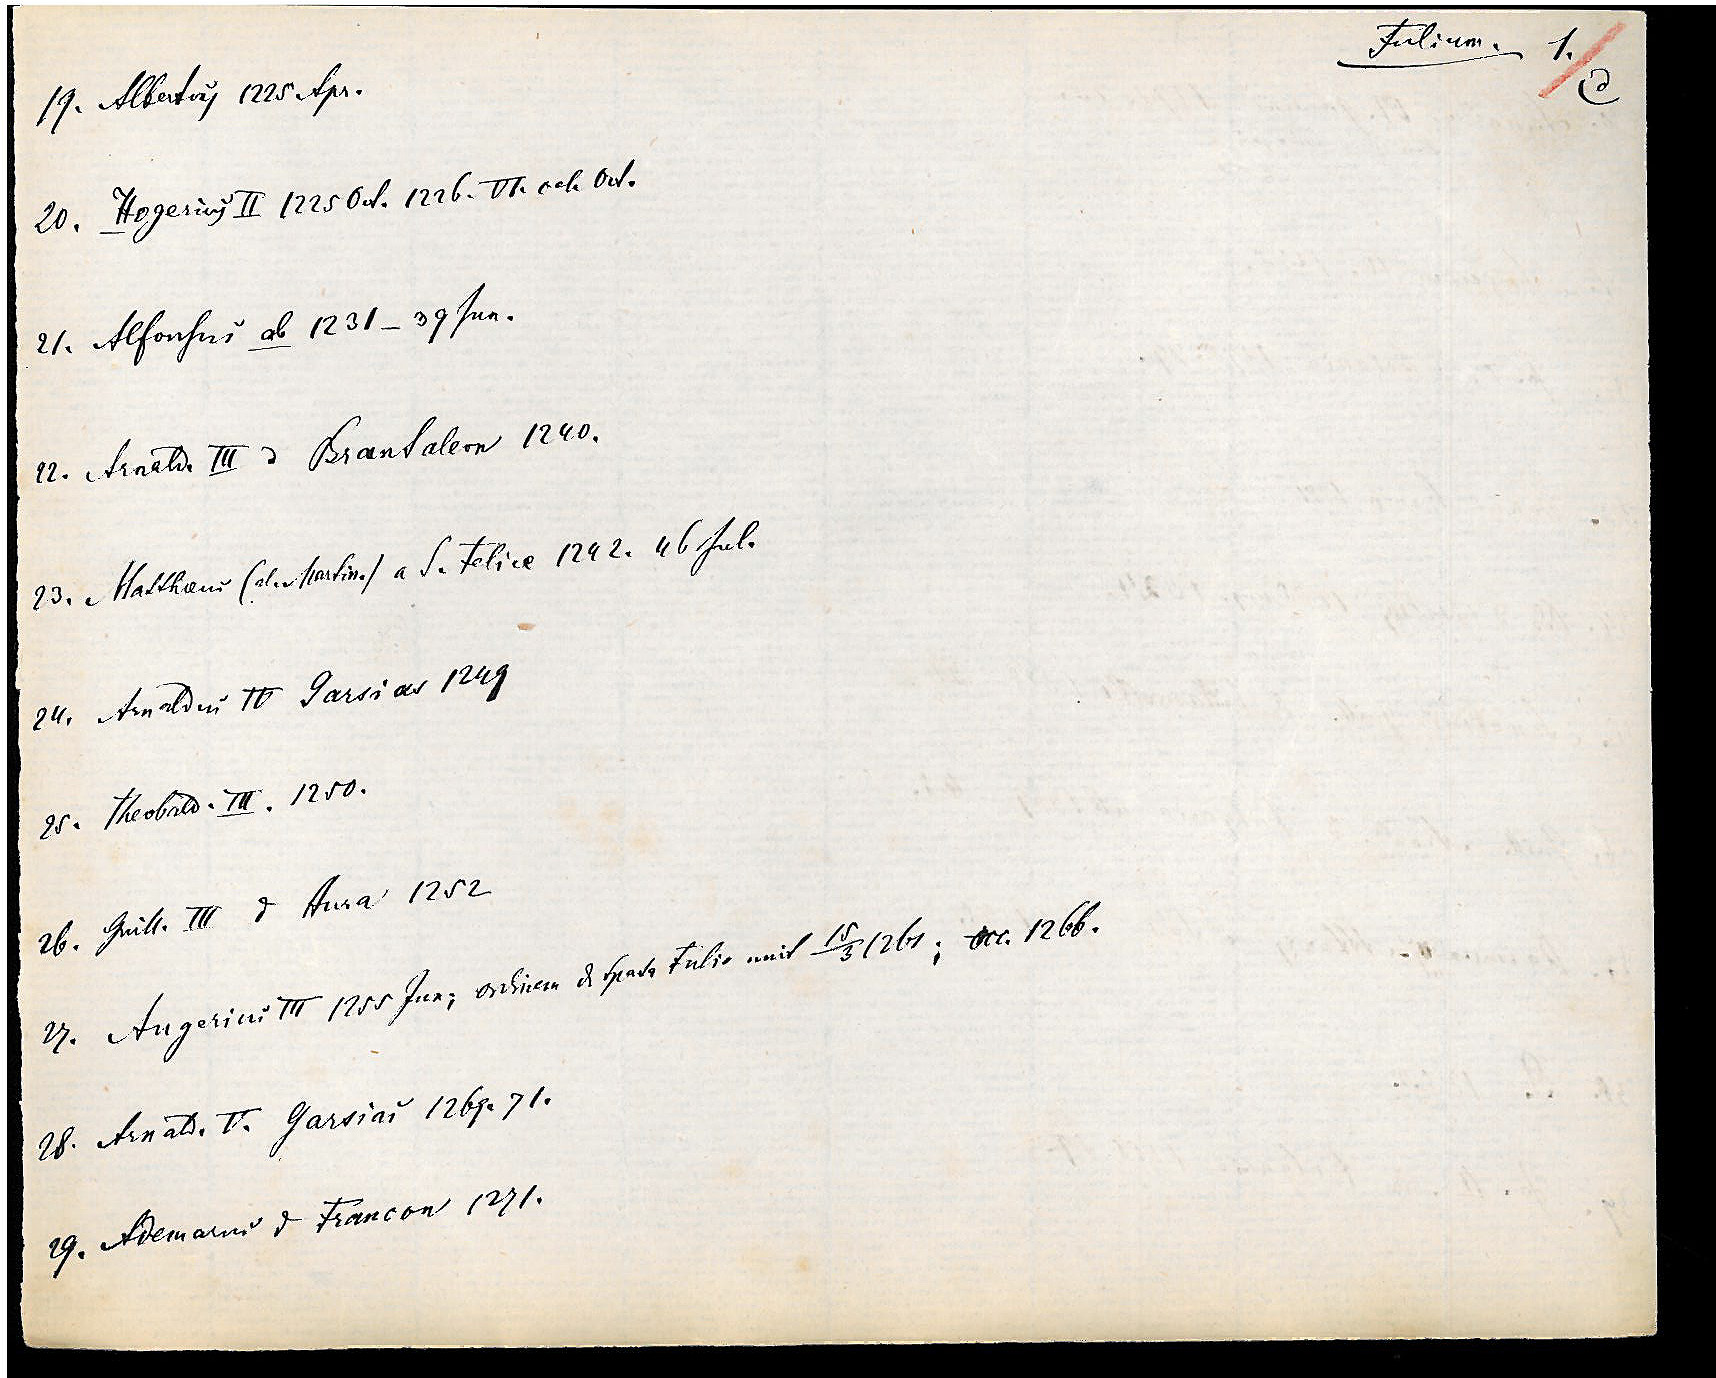 Fulium. 1.
19. Albertus 1225 Apr.
20. Hogerius II 1225 Oct. 1226. VI. och Oct.
21. Alfonsus ab 1231–39 Jun.
22. Arnald. III d Brantaleon 1240.
23. Matthaeus (al. Martin.) a S. Felice 1242. 46 Jul.
24. Arnaldus IV Garsias 1249
25. Theobald. III. 1250.
26. Guill. III d Aura 1252
27. Angerius III 1255 Jun; ordinem d Spata Fulio unit 15/3 1261; occ. 1266.
28. Arnald. V. Garsias 1269. 71.
29. Ademarus d Francon 1271.